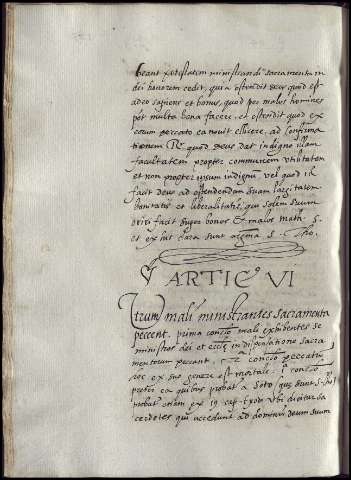 beant potestatem ministrandi sacramenta in
dei honorem cedit, quia ostendit deus quod est
adeo sapiens et bonus, quod per malos homines
pót multa bona facere. et ostendit quod ex
eorum peccato ea novit elicere, ad confirma
tionem R. quod deus dat indigno illam
facultatem propter communem utilitatem
et non propter ipsum indignum vel quod id
facit deus ad ostendendam suam largitatem
bonitatis et liberalitatis, qui solem suum
oriri facit super bonos et malos math. 5.
et ex his clara sunt argma s. Tho.
ARTIC VI
Utrum mali ministrantes sacramenta
peccent. prima conclo mali exhibentes se
ministros dei et eccłę in dispensatione sacra
mentorum peccant. 2 conclo peccatum
hoc ex suo genere est mortale. conclo
preter ea quibus probat a Soto que sunt
probat etiam ex 19 cap. exodi ubi dicitur sa
cerdotes qui accedunt ad dominum deum suum